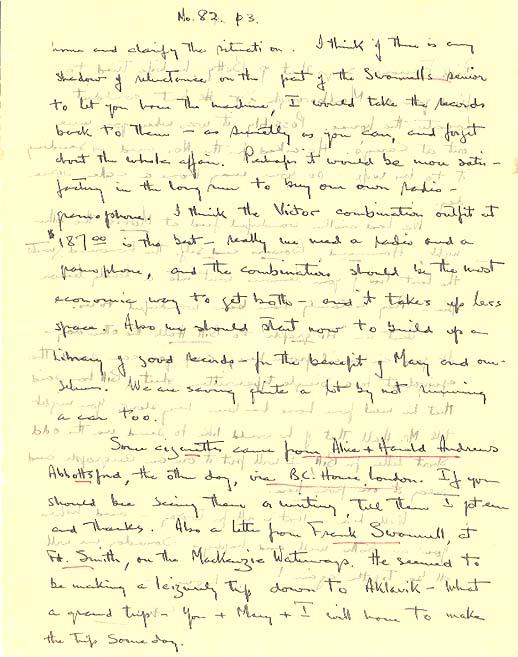 No. 82. p3.
home and clarify the situation. I think if there is any
shadow of reluctance on the part of the Swannells senior
to let you have the machine, I would take the records
back to them - as smartly as you can, and forget
about the whole affair. Perhaps it would be more satis-
factory in the long run to buy our own radio-
gramophone. I think the Victor combination outfit at
$187.00 is the best - really we need a radio and a
gramophone, and the combination should be the most
economic way to get both - and it takes up less
space. Also we should start now to build up a
library of good records - for the benefit of Mary and our-
selves. We are saving quite a lot by not running
a car too.
Some cigarettes came from Alice + Harold Andrews
Abbottsford, the other day, via B.C. House, London. If you
should be seeing them or writing, tell them I got em
and thanks. Also a letter from Frank Swannell, at
Ft. Smith, on the MacKenzie Waterways. He seemed to
be making a leizurely trip down to Aklavik - What
a grand trip - You + Mary + I will have to make
the trip some day.